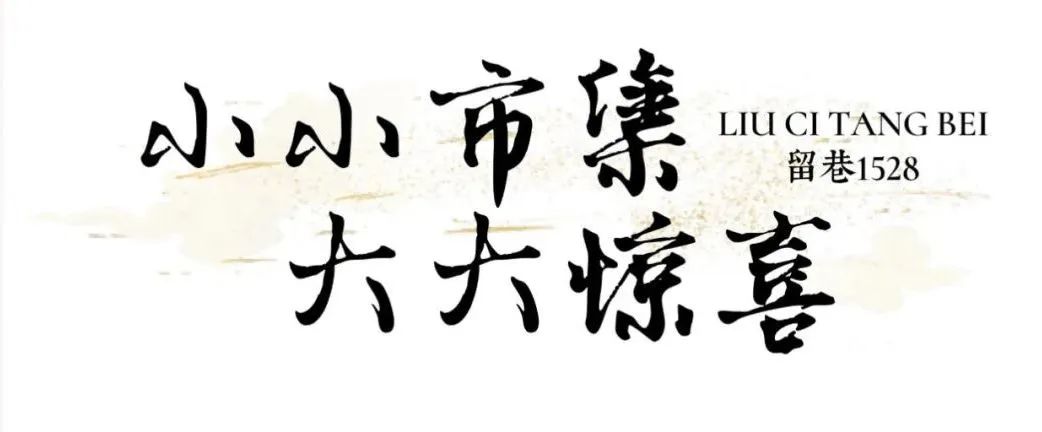 小小市集
LIU CI TANG BEI
留巷1528
大大惊喜